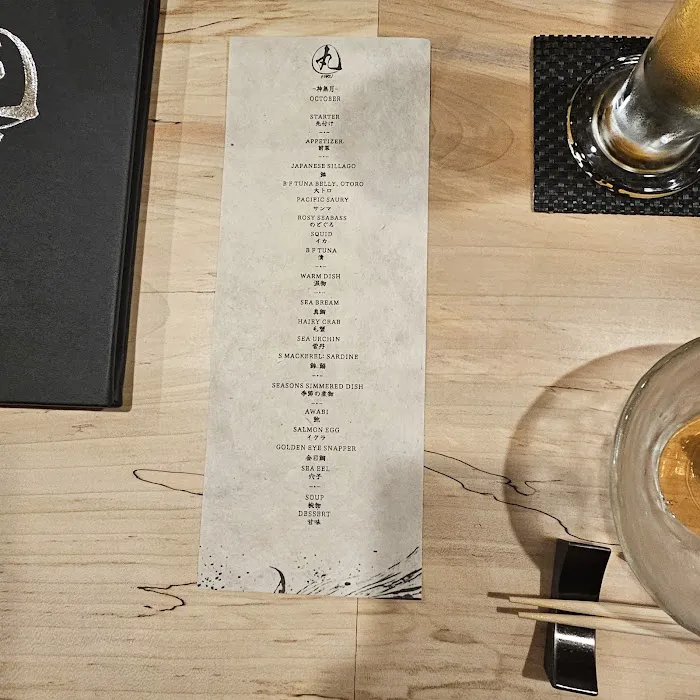 丸
-神無月-
OCTOBER
STARTER
先付け
APPETIZER
前菜
JAPANESE SILLAGO
鱚
B F TUNA BELLY, OTORO
大トロ
PACIFIC SAURY
サンマ
ROSY SEABASS
のどぐろ
SQUID
イカ
B F TUNA
漬
WARM DISH
温物
SEA BREAM
真鯛
HAIRY CRAB
毛蟹
SEA URCHIN
雲丹
S MACKEREL; SARDINE
SEASONS SIMMERED DISH
季節の煮物
AWABI
鮑
SALMON EGG
イクラ
GOLDEN EYE SNAPPER
金目鯛
SEA EEL
穴子
SOUP
椀物
DESSERT
甘味